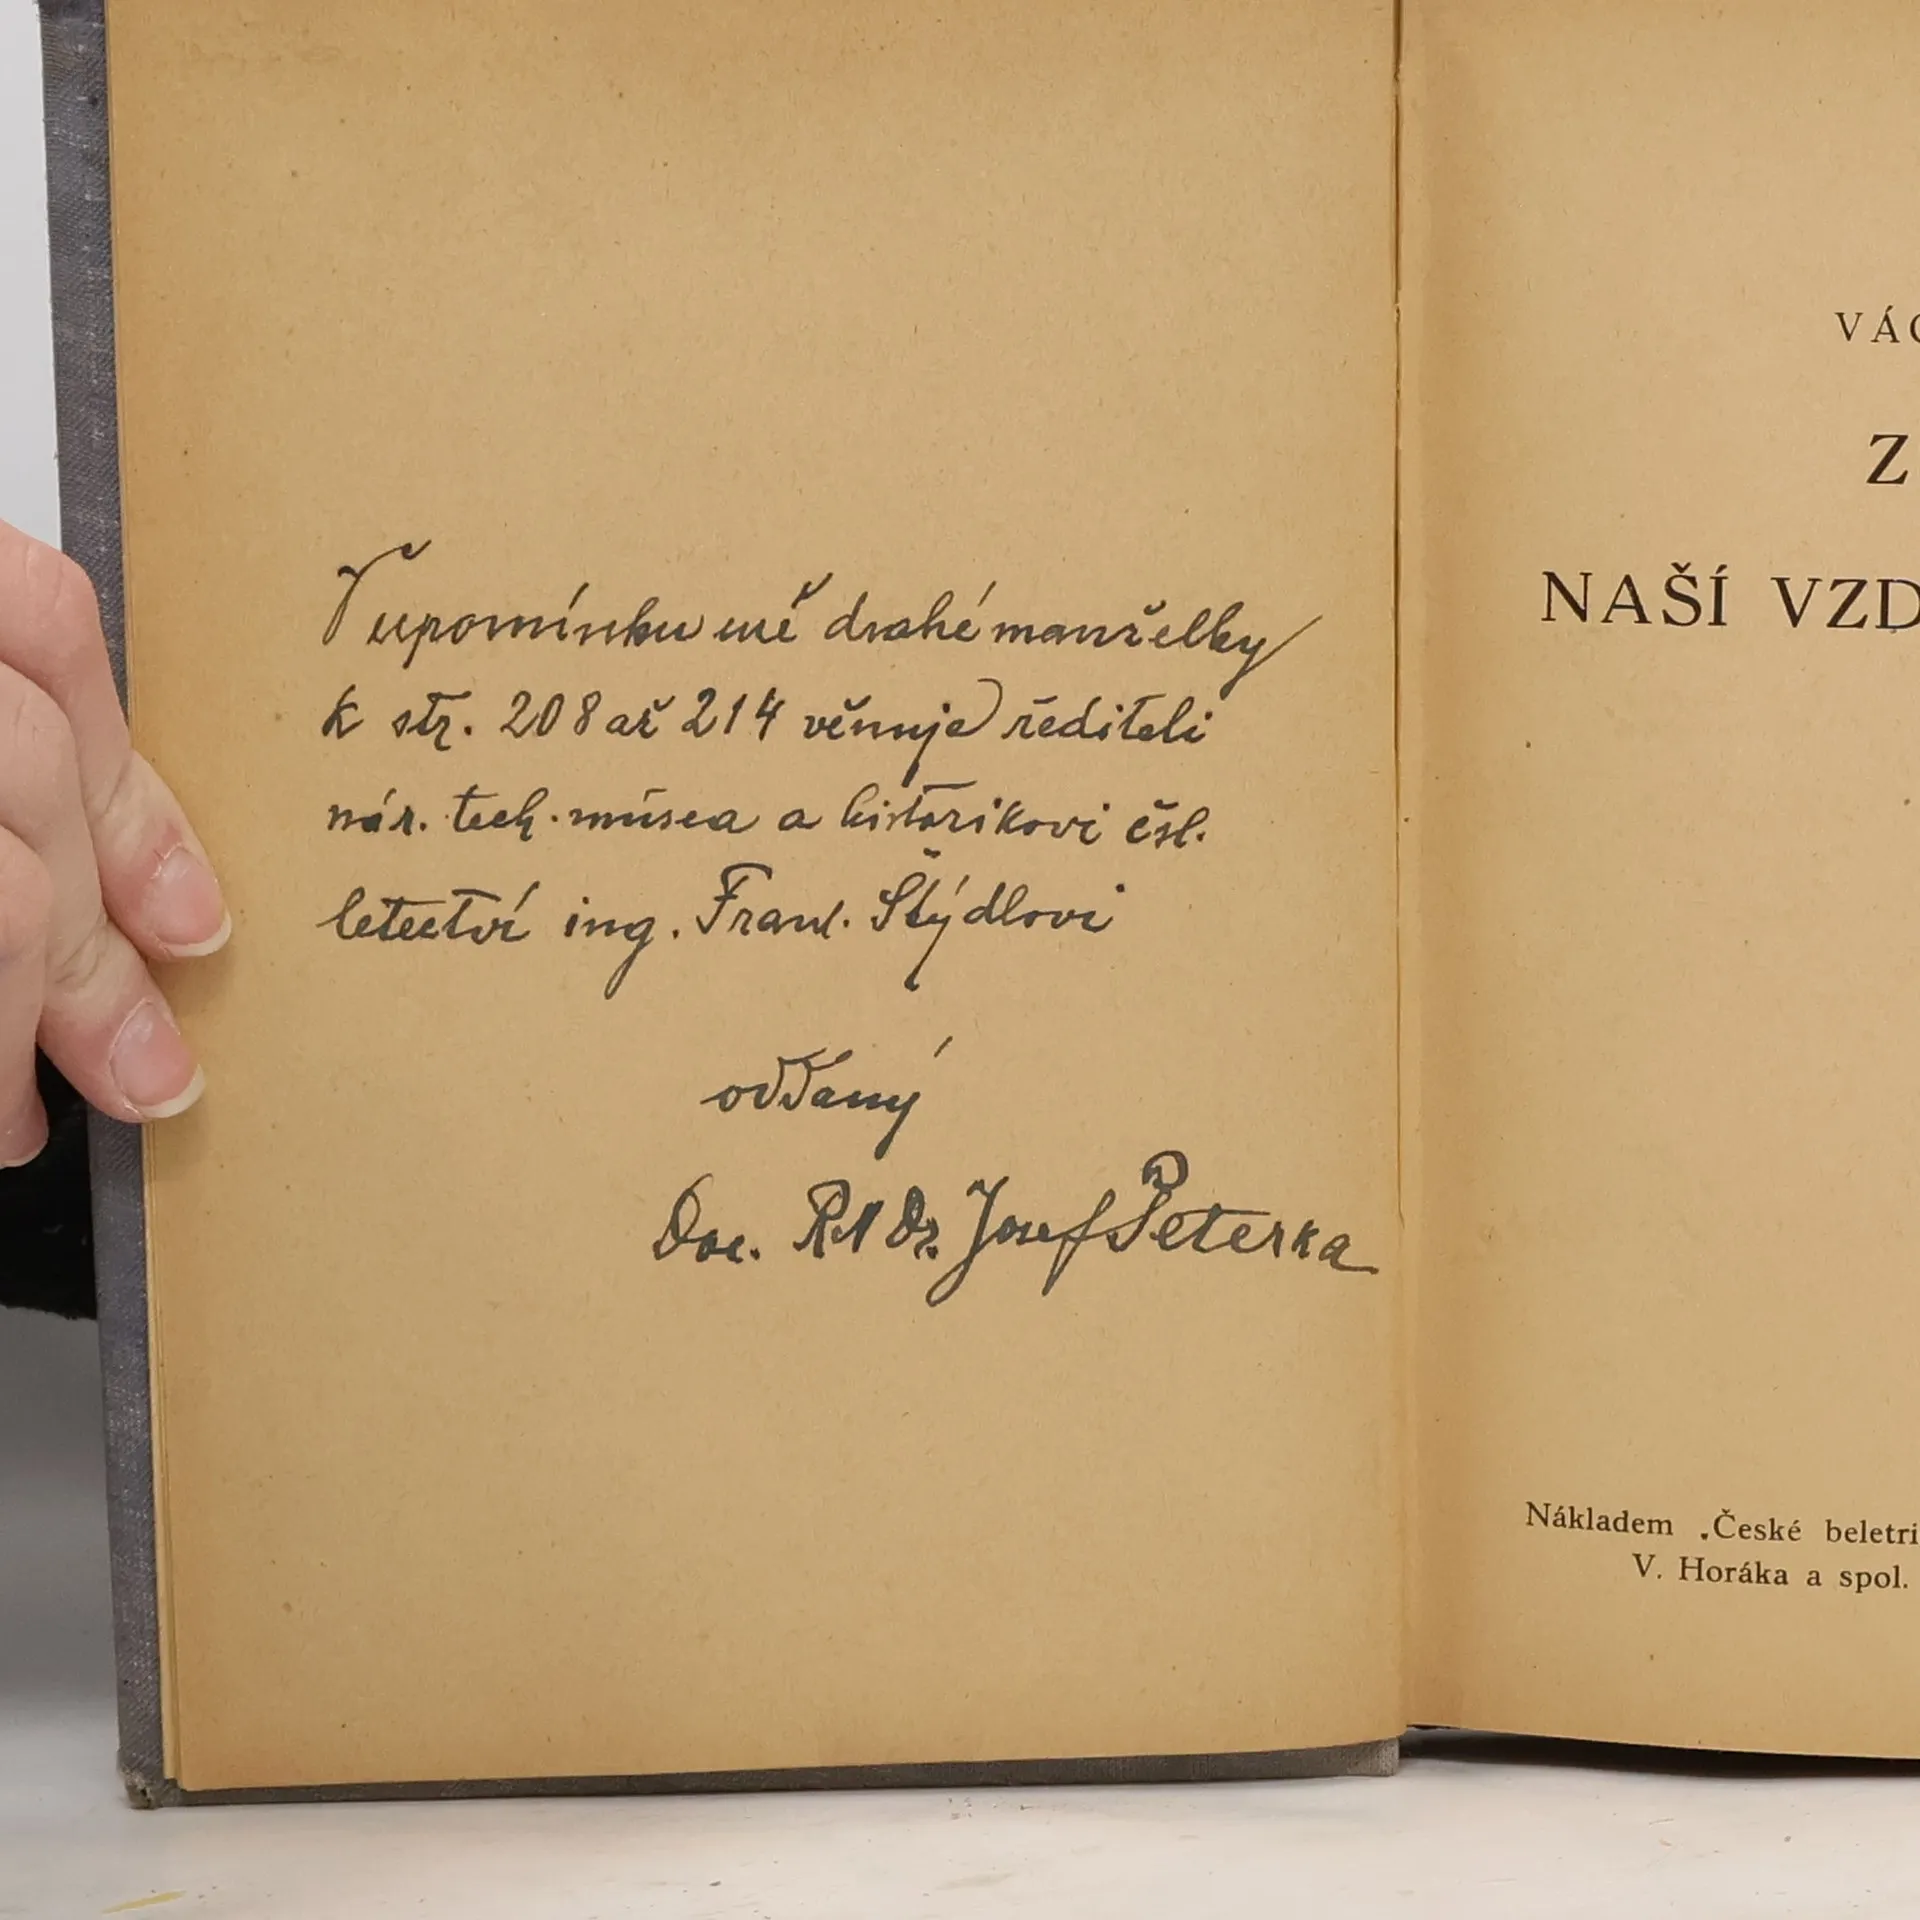 V upomínku mé drahé manželky
k str. 208 až 214 věnuje řediteli
nár. tech. músea a historikovi čsl.
letectví ing. Frant. Štýdlovi
oddaný
Doc. RNDr. Josef Peterka
VÁC
Z
NAŠÍ VZD
Nákladem „České beletri
V. Horáka a spol.